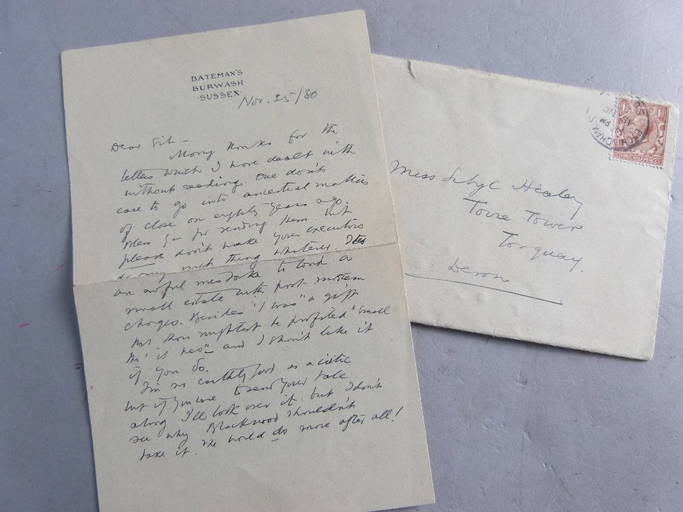 BATEMAN'S
BURWASH
SUSSEX
Nov. 25/30
Dear Sib -
Many thanks for the
letters which I have dealt with
without reading. One don't
care to go into ancestral matters
of close on eighty years ago.
Bless you for sending them but
please don't make your executors
do any such thing whatever. It's
an awful mistake to load a
small estate with post-mortem
charges. Besides "I was" a gift
but thou mightest be profited" 
"it is" and I shan't like it
if you do.
I'm no earthly good as a critic
but if you love to send your tale
along I'll look over it but I don't
see why Blackwood shouldn't
take it. He would do more after all!
Miss Sibyl Healey
Torre Tower
Torquay.
Devon